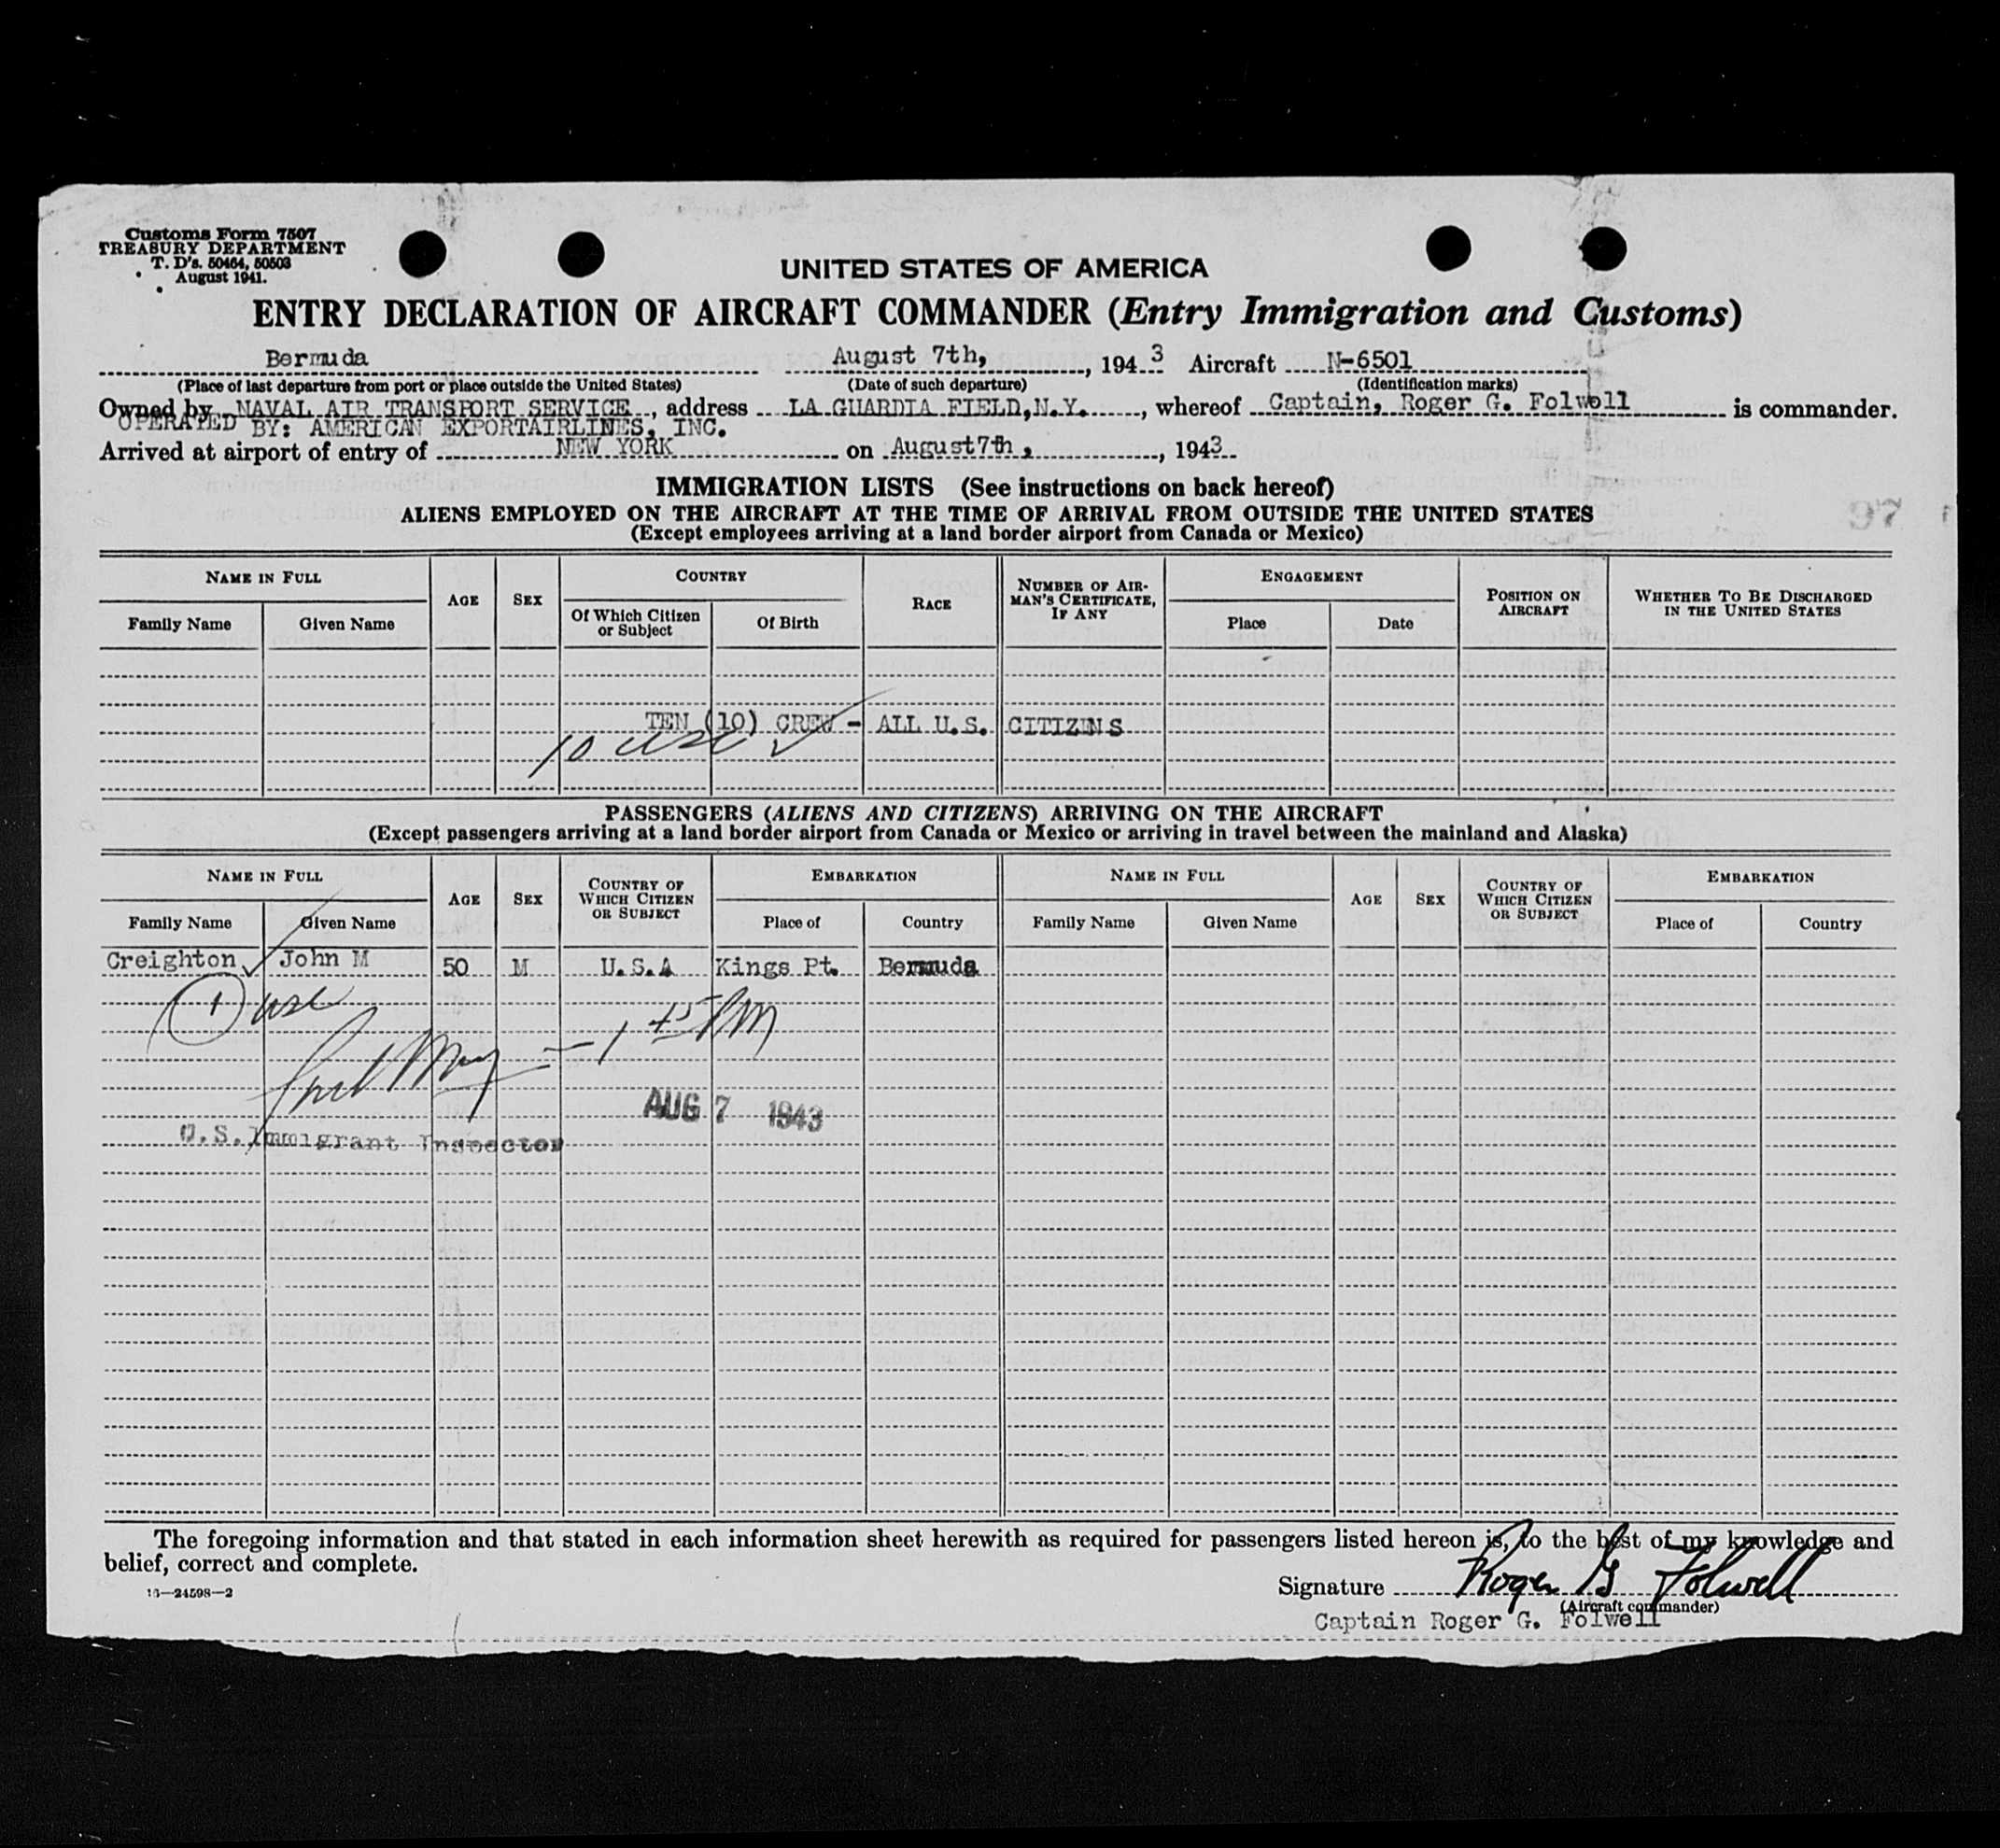 Customs Form 7507
TREASURY DEPARTMENT
T. D's. 50464, 50503
August 1941.
UNITED STATES OF AMERICA
ENTRY DECLARATION OF AIRCRAFT COMMANDER (Entry Immigration and Customs)
Bermuda August 7th, , 1943 Aircraft N-6501
(Place of last departure from port or place outside the United States) (Date of such departure) (Identification marks)
Owned by NAVAL AIR TRANSPORT SERVICE , address LA GUARDIA FIELD,N.Y. , whereof Captain, Roger G. Folwell is commander.
OPERATED BY: AMERICAN EXPORTAIRLINES, INC.
Arrived at airport of entry of NEW YORK on August7th, , 1943
IMMIGRATION LISTS (See instructions on back hereof)
ALIENS EMPLOYED ON THE AIRCRAFT AT THE TIME OF ARRIVAL FROM OUTSIDE THE UNITED STATES
97
(Except employees arriving at a land border airport from Canada or Mexico)
NAME IN FULL AGE SEX COUNTRY RACE NUMBER OF AIR-MAN'S CERTIFICATE, IF ANY ENGAGEMENT POSITION ON AIRCRAFT WHETHER TO BE DISCHARGED IN THE UNITED STATES
Family Name Given Name Of Which Citizen or Subject Of Birth Place Date
TEN (10) CREW - ALL U.S. CITIZENS
10 usc
PASSENGERS (ALIENS AND CITIZENS) ARRIVING ON THE AIRCRAFT
(Except passengers arriving at a land border airport from Canada or Mexico or arriving in travel between the mainland and Alaska)
NAME IN FULL AGE SEX COUNTRY OF WHICH CITIZEN OR SUBJECT EMBARKATION NAME IN FULL AGE SEX COUNTRY OF WHICH CITIZEN OR SUBJECT EMBARKATION
Family Name Given Name Place of Country Family Name Given Name Place of Country
Creighton John M 50 M U.S.A Kings Pt. Bermuda
1 usc
1 45 PM
AUG 7 1943
U.S. Immigrant Inspector
The foregoing information and that stated in each information sheet herewith as required for passengers listed hereon is, to the best of my knowledge and
belief, correct and complete.
16—24598—2
Signature Roger G Folwell
(Aircraft commander)
Captain Roger G. Folwell